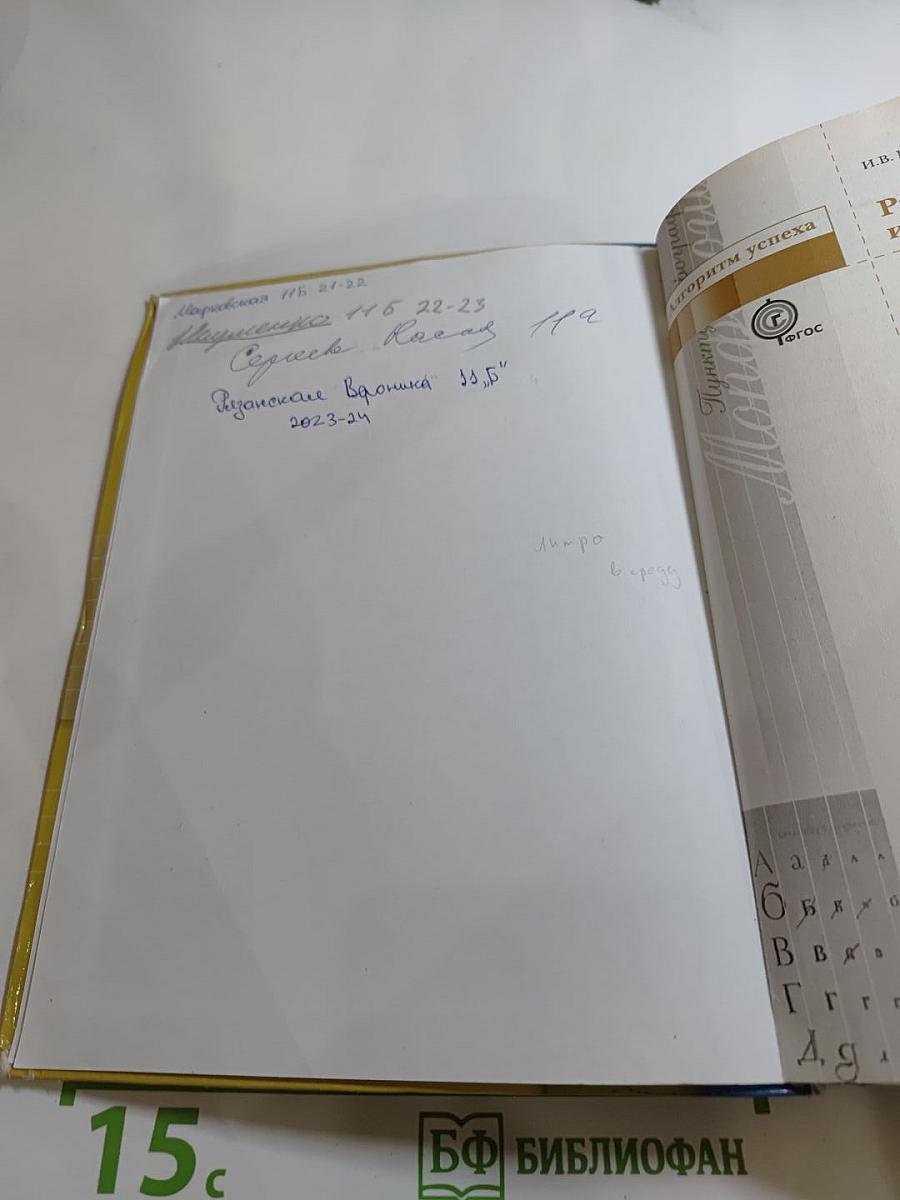 Марковская 11Б 21-22
Науменко 11 Б 22-23
Сергеев 11а
Рязанская Вероника 11„Б"
2023-24
Литра
в среду
И.В.
Алгоритм успеха
ФГОС
Пункт
А а
Б Б
В в
Г г г г
Д
15 с
БФ БИБЛИОФАН